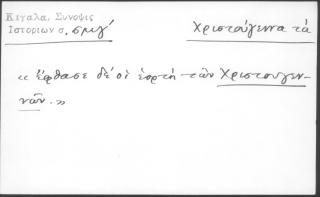 Κιγαλα, Συνοψις
Ιστοριων σ. σμγ´ Χριστούγεννα τά
« Ἔφθασε δέ οἱ ἑορτή τῶν Χριστουγεν-
νῶν. »